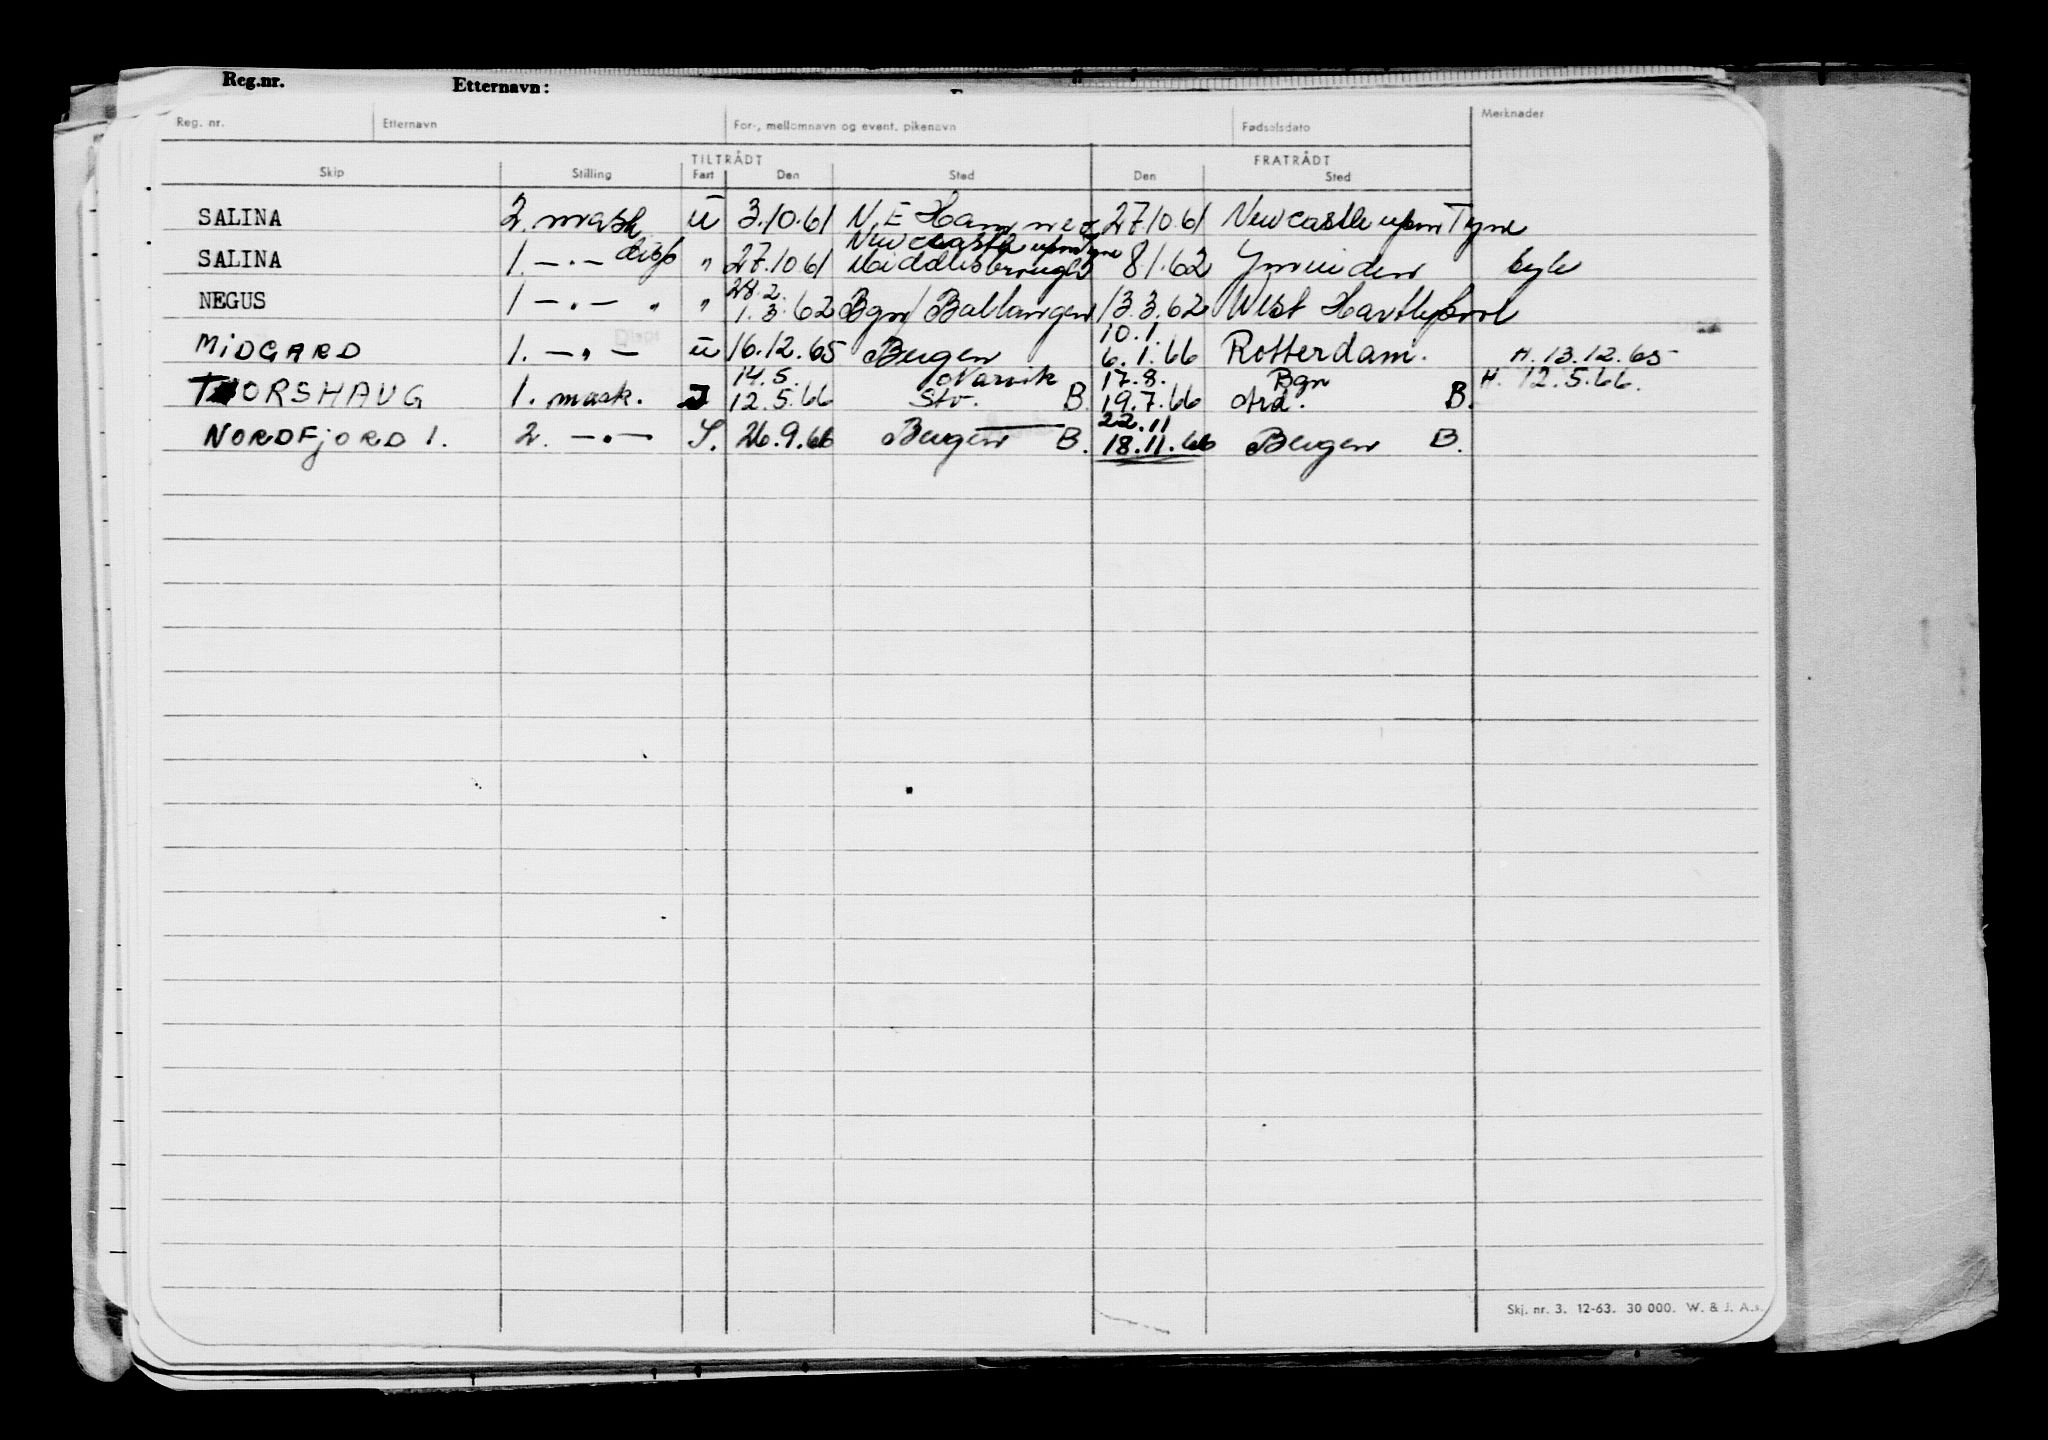 Reg.nr. Etternavn:
Reg. nr. Etternavn For-, mellomnavn og event. pikenavn Fødselsdato Merknader
TILTRÅDT FRATRÅDT
Skip Stilling Fart Den Sted Den Sted
SALINA 2. mask ū 3.10.61 N.E 27.10.61 Newcastle upon Tyne
Newcastle upon Tyne
SALINA 1. — · — disp " 27.10 61 Middlesbrough 8/1.62 Ymuiden
28.2.
NEGUS 1 — · — " " 1.3.62 Bgn/Ballangen 13.3.62 West Hartlepool
10.1.
MiDGARD 1. — · — ū 16.12.65 Bergen 6.1.66 Rotterdam. H. 13.12.65
14.5. Narvik 17.8. Bgn H. 12.5.66.
THORSHAUG 1. mask. 12.5.66 Stv. B. 19.7.66 Ård. B.
22.11
NORDFjORD 1. 2. — · — S. 26.9.66 Bergen B. 18.11.66 Bergen B.
Skj. nr. 3. 12-63. 30 000. W. & J. A.s.